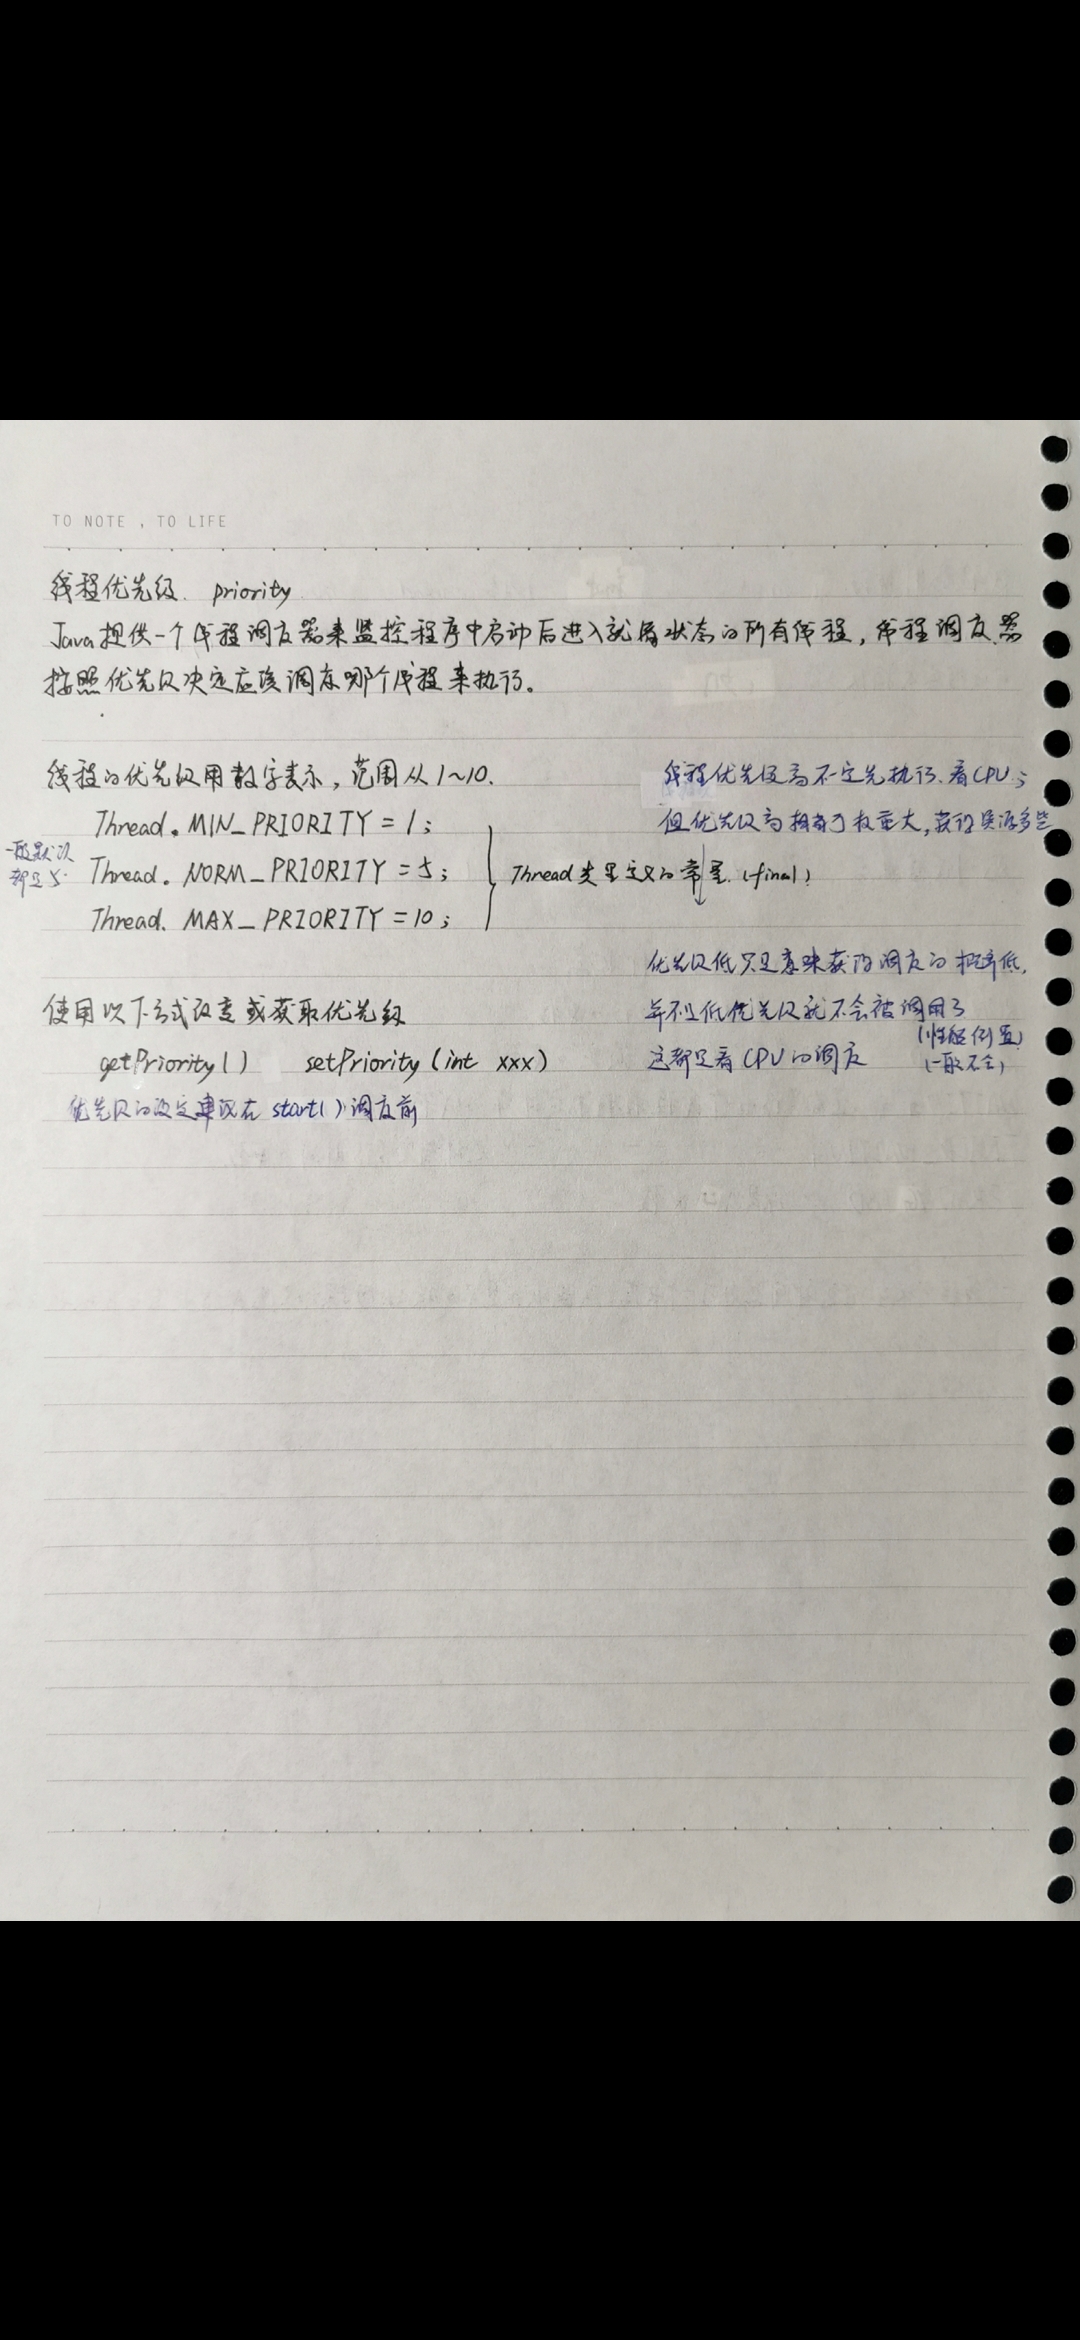 TO NOTE , TO LIFE
线程优先级. priority
Java提供一个线程调度器来监控程序中启动后进入就绪状态的所有线程, 线程调度器
按照优先级决定应该调度哪个线程来执行。
线程的优先级用数字表示, 范围从1~10.
Thread. MIN_PRIORITY = 1;
一般默认
都是5.
Thread. NORM_PRIORITY = 5;
Thread. MAX_PRIORITY = 10;
Thread类里定义的常量. (final)
使用以下方式改变或获取优先级
getPriority() setPriority (int xxx)
优先级的设定建议在 start() 调度前
线程优先级高不一定先执行. 看CPU;
但优先级高拥有了权重大, 获的资源多些
优先级低只是意味获得调度的概率低,
并不是低优先级就不会被调用了
(性能倒置)
这都是看CPU的调度
(一般不会)